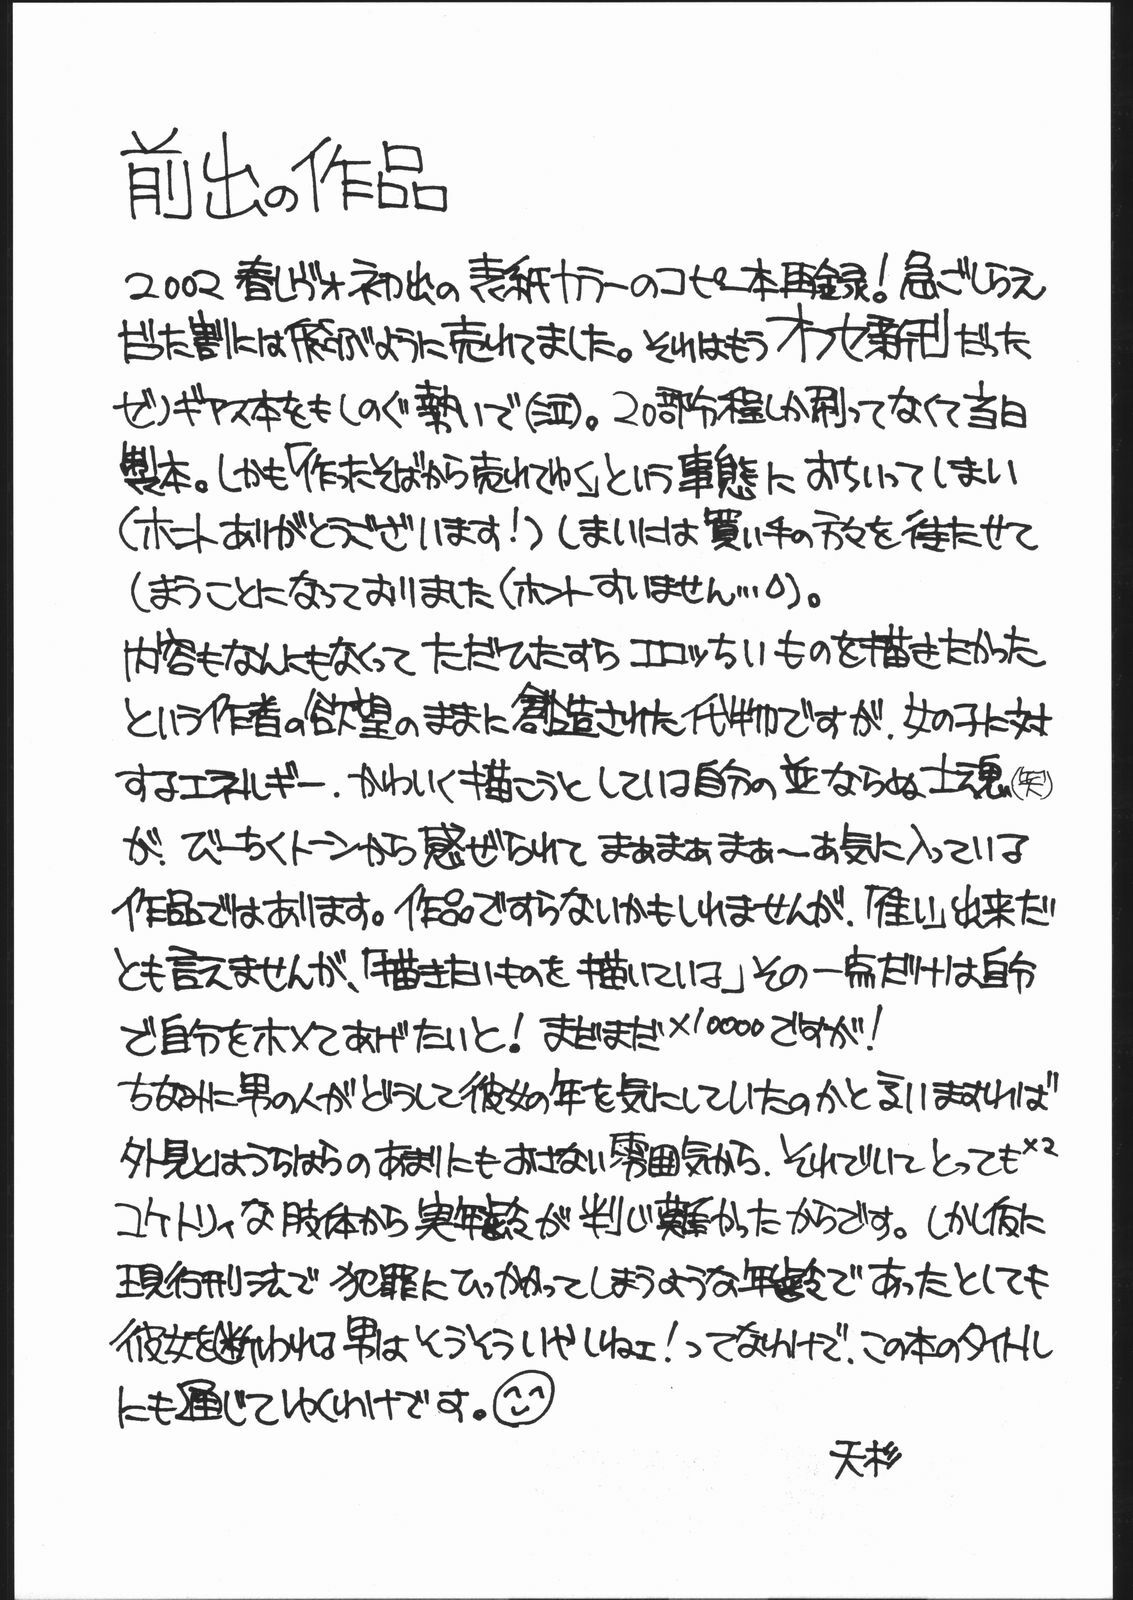 前出の作品
2002春レヴォ初出の表紙カラーのコピー本再録！急ごしらえ
だった割には飛ぶように売れてました。それはもうオフセ新刊だった
ゼノギアス本をもしのぐ勢いで(泣)。20部分程しか刷ってなくて当日
製本。しかも「作ったそばから売れてゆく」という事態におちいってしまい
(ホントありがとうございます！)しまいには買い手の方々を待たせて
しまうことになっておりました(ホントすいません…)。
内容もなんにもなくってただひたすらエロっちいものを描きたかった
という作者の欲望のままに創造された代物ですが、女の子に対
するエネルギー、かわいく描こうとしている自分の並ならぬ士魂(笑)
が、びーちくトーンから感ぜられてまぁまぁまぁ〜お気に入っている
作品ではあります。作品ですらないかもしれませんが、「佳い」出来だ
とも言えませんが、「描きたいものを描いている」その一点だけは自分
で自分をホメてあげたいと！まだまだ×10000ですが！
ちなみに男の人がどうして彼女の年を気にしていたのかと言いますれば
外見とはうらはらのあまりにもおさない雰囲気から、それでいてとっても×2
コケトリィな肢体から実年齢が判じ難かったからです。しかし仮に
現行刑法で犯罪にひっかかってしまうような年齢であったとしても
彼女を断われる男はそうそういやしねェ！ってなわけで、この本のタイトル
にも通じてゆくわけです。
天杉